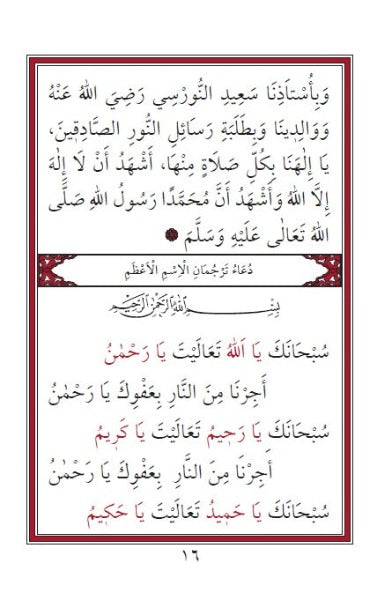 وَبِأُسْتَاذِنَا سَعِيدِ النُّورْسِي رَضِيَ اللهُ عَنْهُ
وَوَالِدِينَا وَبِطَلَبَةِ رَسَائِلِ النُّورِ الصَّادِقِينَ،
يَا إِلٰهَنَا بِكُلِّ صَلَاةٍ مِنْهَا، أَشْهَدُ أَنْ لَا إِلٰهَ
إِلَّا اللهُ وَأَشْهَدُ أَنَّ مُحَمَّدًا رَسُولُ اللهِ صَلَّى
اللهُ تَعَالٰى عَلَيْهِ وَسَلَّمَ
دُعَاءُ تَرْجُمَانِ الْاِسْمِ الْاَعْظَمِ
بِسْمِ اللهِ الرَّحْمٰنِ الرَّحِيمِ
سُبْحَانَكَ يَا اَللهُ تَعَالَيْتَ يَا رَحْمٰنُ
أَجِرْنَا مِنَ النَّارِ بِعَفْوِكَ يَا رَحْمٰنُ
سُبْحَانَكَ يَا رَحِيمُ تَعَالَيْتَ يَا كَرِيمُ
أَجِرْنَا مِنَ النَّارِ بِعَفْوِكَ يَا رَحْمٰنُ
سُبْحَانَكَ يَا حَمِيدُ تَعَالَيْتَ يَا حَكِيمُ
١٦